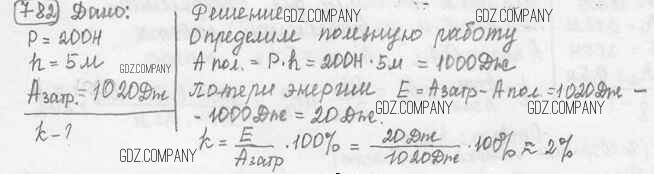 782 Дано:
P = 200Н
h = 5м
Aзатр. = 1020Дж
k - ?
Решение
GDZ.COMPANY
Определим полезную работу
A пол. = P·h = 200Н·5м = 1000Дж
GDZ.COMPANY
Потери энергии E = Aзатр - A пол. = 1020Дж -
- 1000Дж = 20Дж.
GDZ.COMPANY
GDZ.COMPANY
k = E/Aзатр · 100% = 20Дж/1020Дж · 100% ≈ 2%
GDZ.COMPANY
GDZ.COMPANY